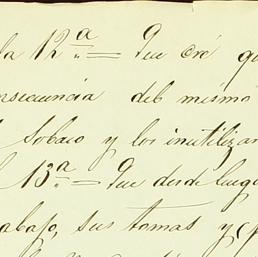 la 12ª = Que cré q
nsecuencia del mismo
Sobaco y los inutilizar
13ª = Que desde luego
abajo, sus tomas y